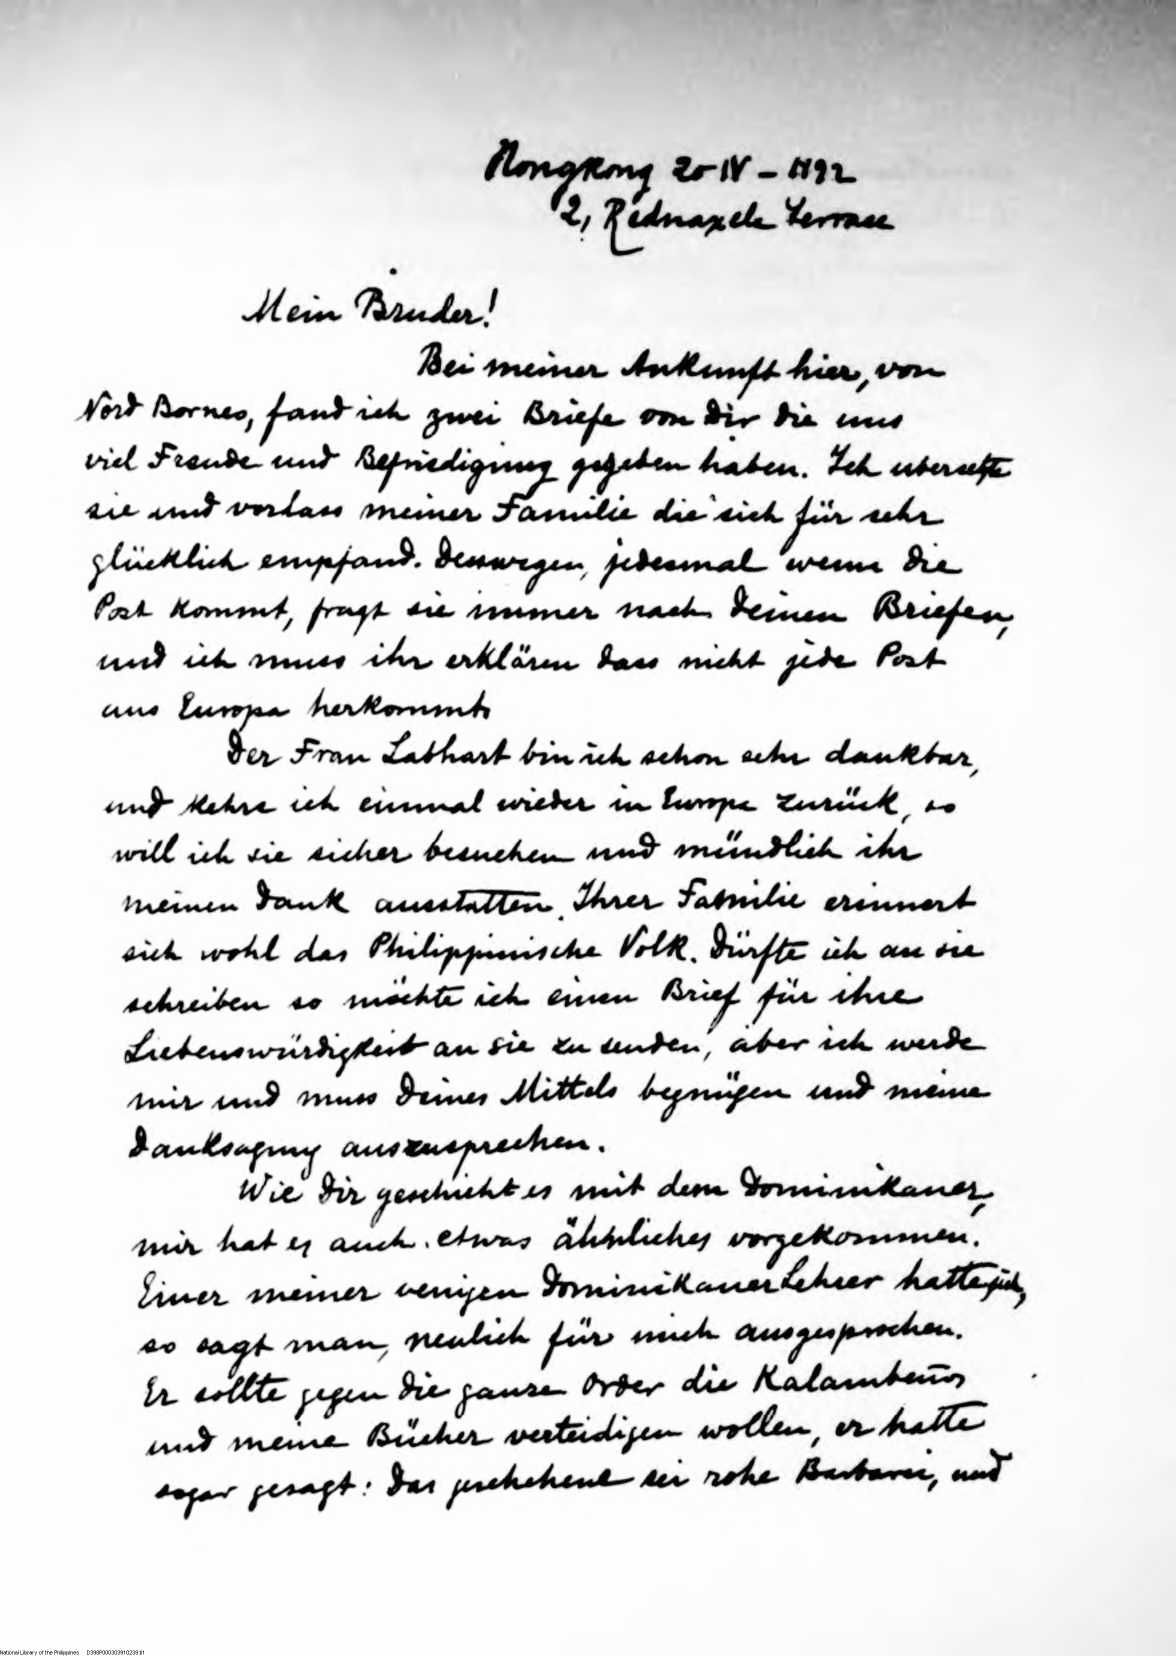 Hongkong 20-IV-1892
2, Rednaxela Terrace
Mein Bruder!
Bei meiner Ankunft hier, von
Nord Borneo, fand ich zwei Briefe von Dir die uns
viel Freude und Befriedigung gegeben haben. Ich ubersetzte
sie und vorlass meiner Familie die sich für sehr
glücklich empfand. Desswegen, jedesmal wenn die
Post kommt, fragt sie immer nach Deinen Briefen,
und ich muss ihr erklären dass nicht jede Post
aus Europa herkommt.
Der Frau Labhart bin ich schon sehr dankbar,
und kehre ich einmal wieder in Europa zurück, so
will ich sie sicher besuchen und mündlich ihr
meinen Dank ausstatten. Ihrer Familie erinnert
sich wohl das Philippinische Volk. Dürfte ich an sie
schreiben so möchte ich einen Brief für ihre
Liebenswürdigkeit an sie zu senden, aber ich werde
mir und muss Deines Mittels begnügen und meine
Danksagung auszusprechen.
Wie Dir geschieht es mit dem Dominikaner,
mir hat es auch etwas ähnliches vorgekommen.
Einer meiner wenigen Dominikaner Lehrer hatte sich,
so sagt man, neulich für mich ausgesprochen.
Er sollte gegen die ganze Order die Kalambeños
und meine Bücher verteidigen wollen, er hatte
sogar gesagt: Das geschehene sei rohe Barbarei, und
National Library of the Philippines